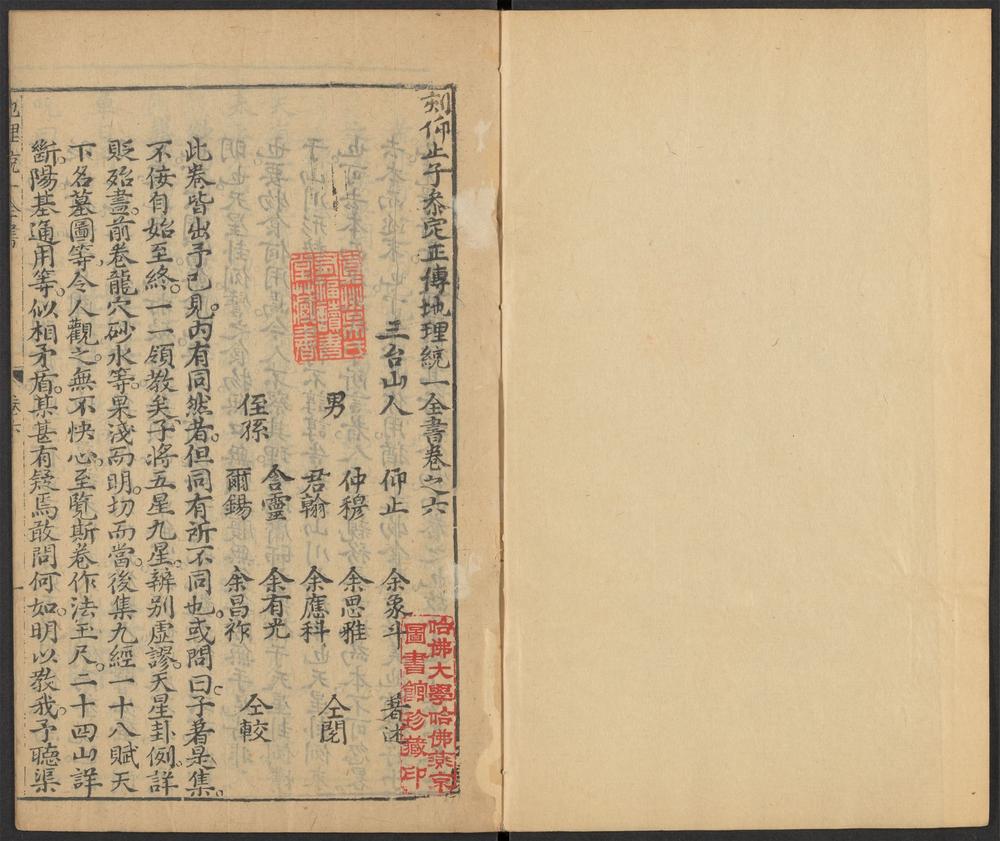 刻仰止子參定正傳地理統一全書卷之六
三台山人　仰止　余象斗　著述
男　仲穆　余思雅
君翰　余應科　仝閱
侄孫　含靈　余有光
爾錫　余昌祚　仝較
此卷皆出予己見。內有同然者。但同有所不同也。或問曰。子著是集。
不佞自始至終。一一領教矣。子將五星九星。辨別虛謬。天星卦例。詳
貶殆盡。前卷龍穴砂水等。果淺而明。切而當。後集九經一十八賦天
下名墓圖等。令人觀之。無不快心。至覽斯卷作法玉尺。二十四山詳
斷。陽基通用等。似相矛盾。某甚有疑焉。敢問何如。明以教我。予聽渠
地理統一全書
卷六
一
哈佛大學哈佛燕京
圖書館珍藏印